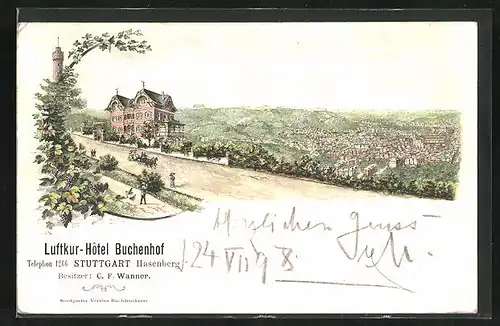 Luftkur-Hôtel Buchenhof
Telephon 1266 STUTTGART Hasenberg
Besitzer: C. F. Wanner.
Stuttgarter Vereins Buchdruckerei
Herzlichen Gruss
24 VII 98